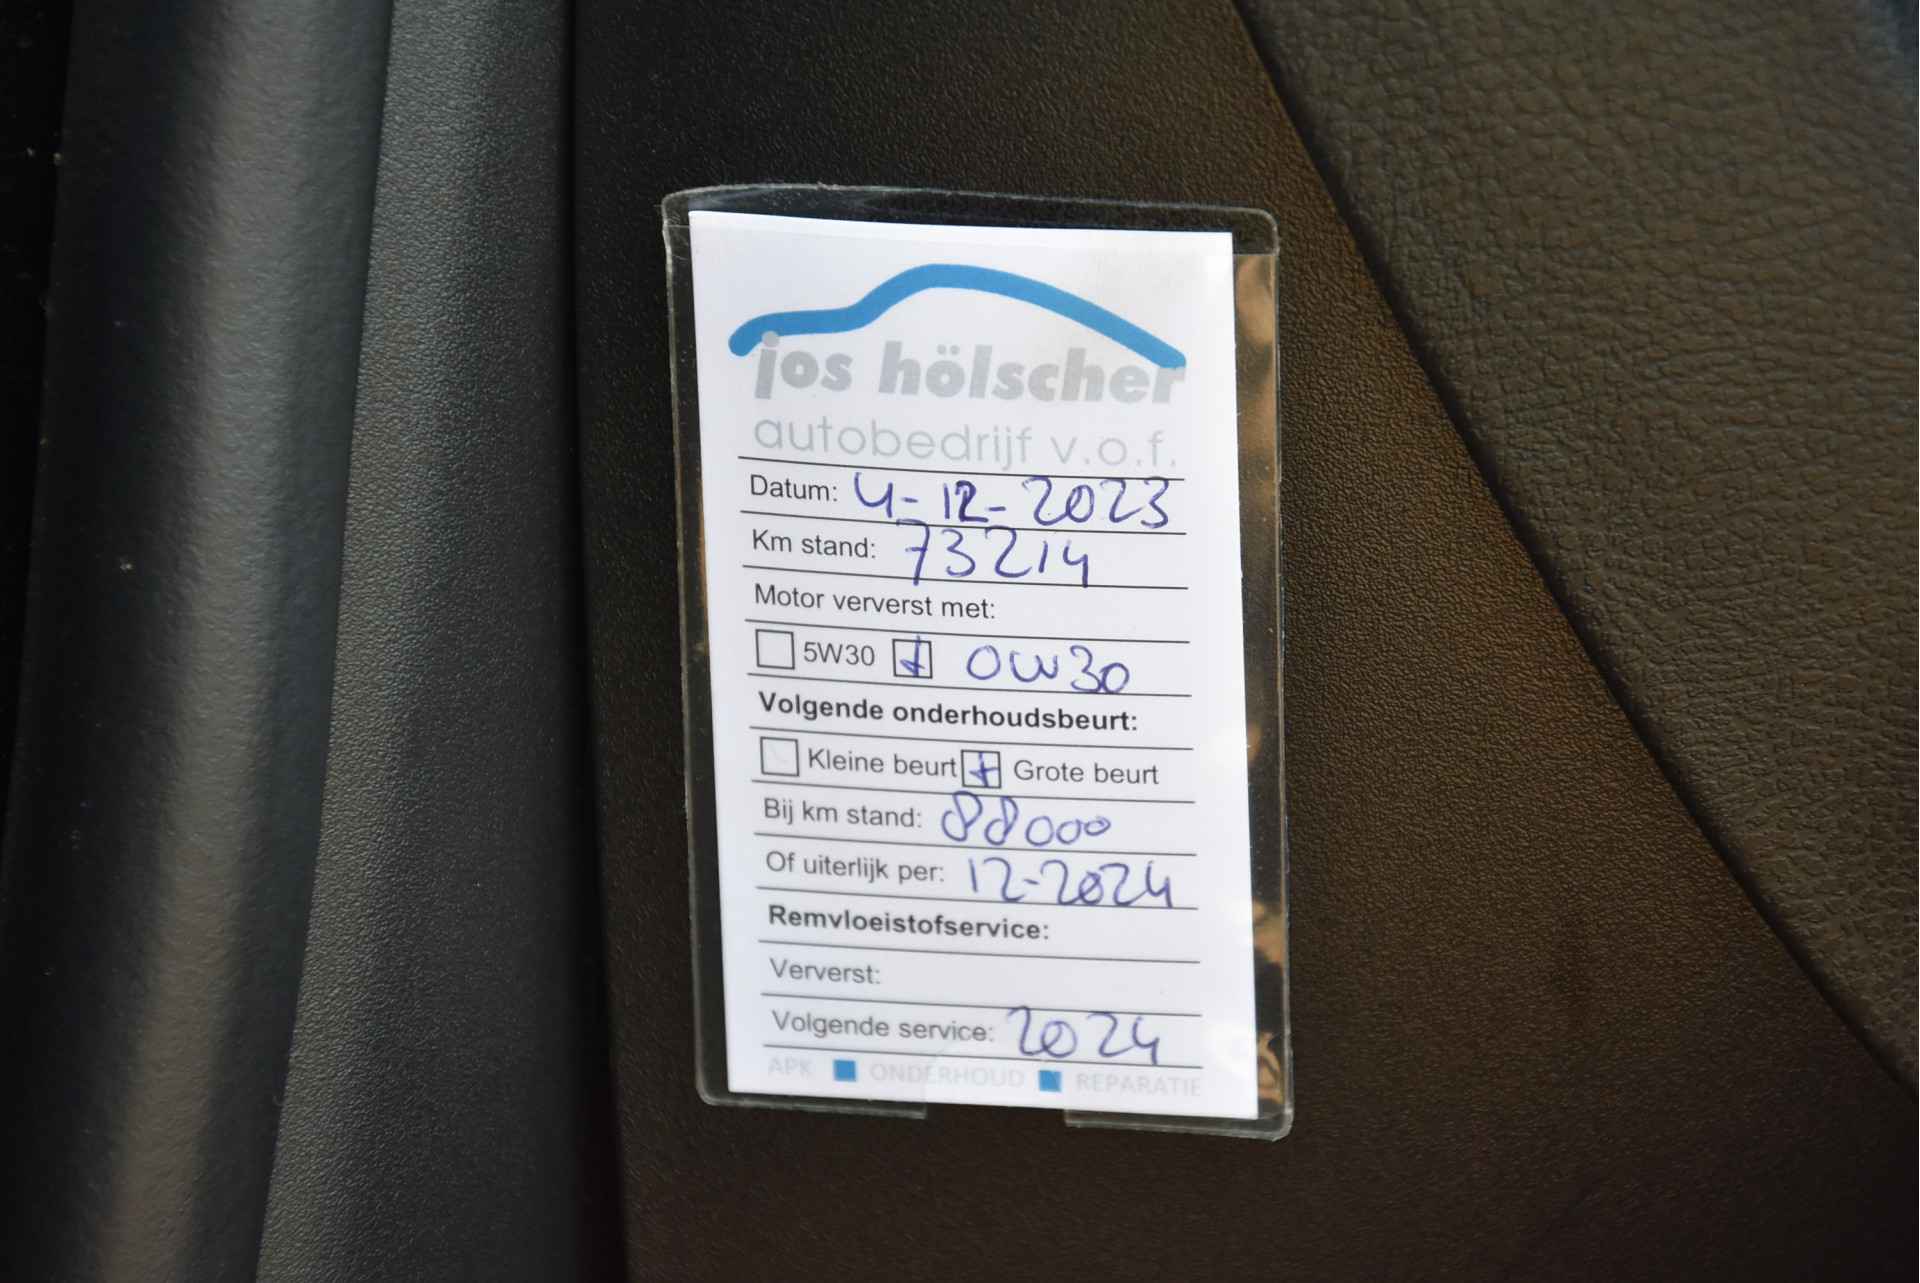 jos hölscher
autobedrijf v.o.f.
Datum: 4-12-2023
Km stand: 73214
Motor ververst met:
5W30 0W30
Volgende onderhoudsbeurt:
Kleine beurt Grote beurt
Bij km stand: 88000
Of uiterlijk per: 12-2024
Remvloeistofservice:
Ververst:
Volgende service: 2024
APK ONDERHOUD REPARATIE